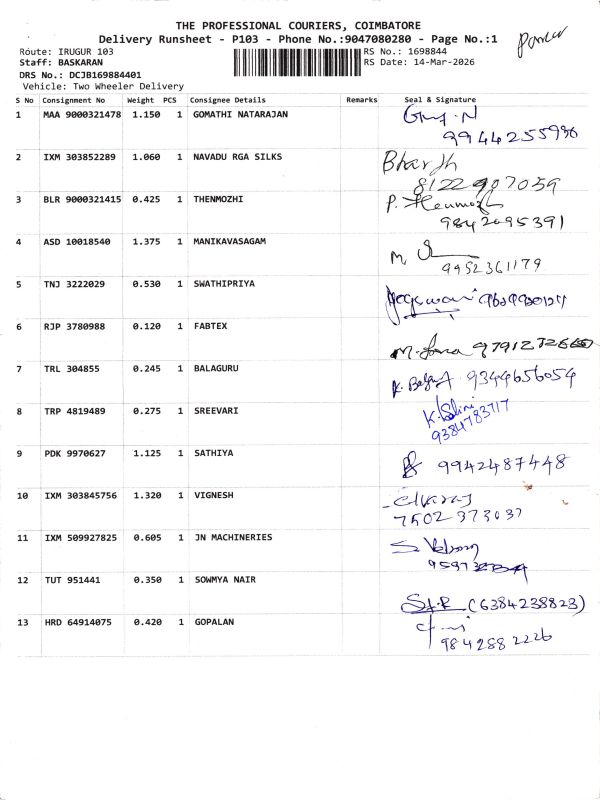 THE PROFESSIONAL COURIERS, COIMBATORE
Delivery Runsheet - P103 - Phone No.:9047080280 - Page No.:1
Route: IRUGUR 103
RS No.: 1698844
Staff: BASKARAN
RS Date: 14-Mar-2026
DRS No.: DCJB169884401
Vehicle: Two Wheeler Delivery
S No Consignment No Weight PCS Consignee Details Remarks Seal & Signature
1 MAA 9000321478 1.150 1 GOMATHI NATARAJAN
9944255936
2 IXM 303852289 1.060 1 NAVADU RGA SILKS
8122907059
3 BLR 9000321415 0.425 1 THENMOZHI
9842095391
4 ASD 10018540 1.375 1 MANIKAVASAGAM
9952361179
5 TNJ 3222029 0.530 1 SWATHIPRIYA
6 RJP 3780988 0.120 1 FABTEX
7 TRL 304855 0.245 1 BALAGURU
9344656054
8 TRP 4819489 0.275 1 SREEVARI
9384783717
9 PDK 9970627 1.125 1 SATHIYA
9942487448
10 IXM 303845756 1.320 1 VIGNESH
7502373037
11 IXM 509927825 0.605 1 JN MACHINERIES
12 TUT 951441 0.350 1 SOWMYA NAIR
(6384238823)
13 HRD 64914075 0.420 1 GOPALAN
9842882226